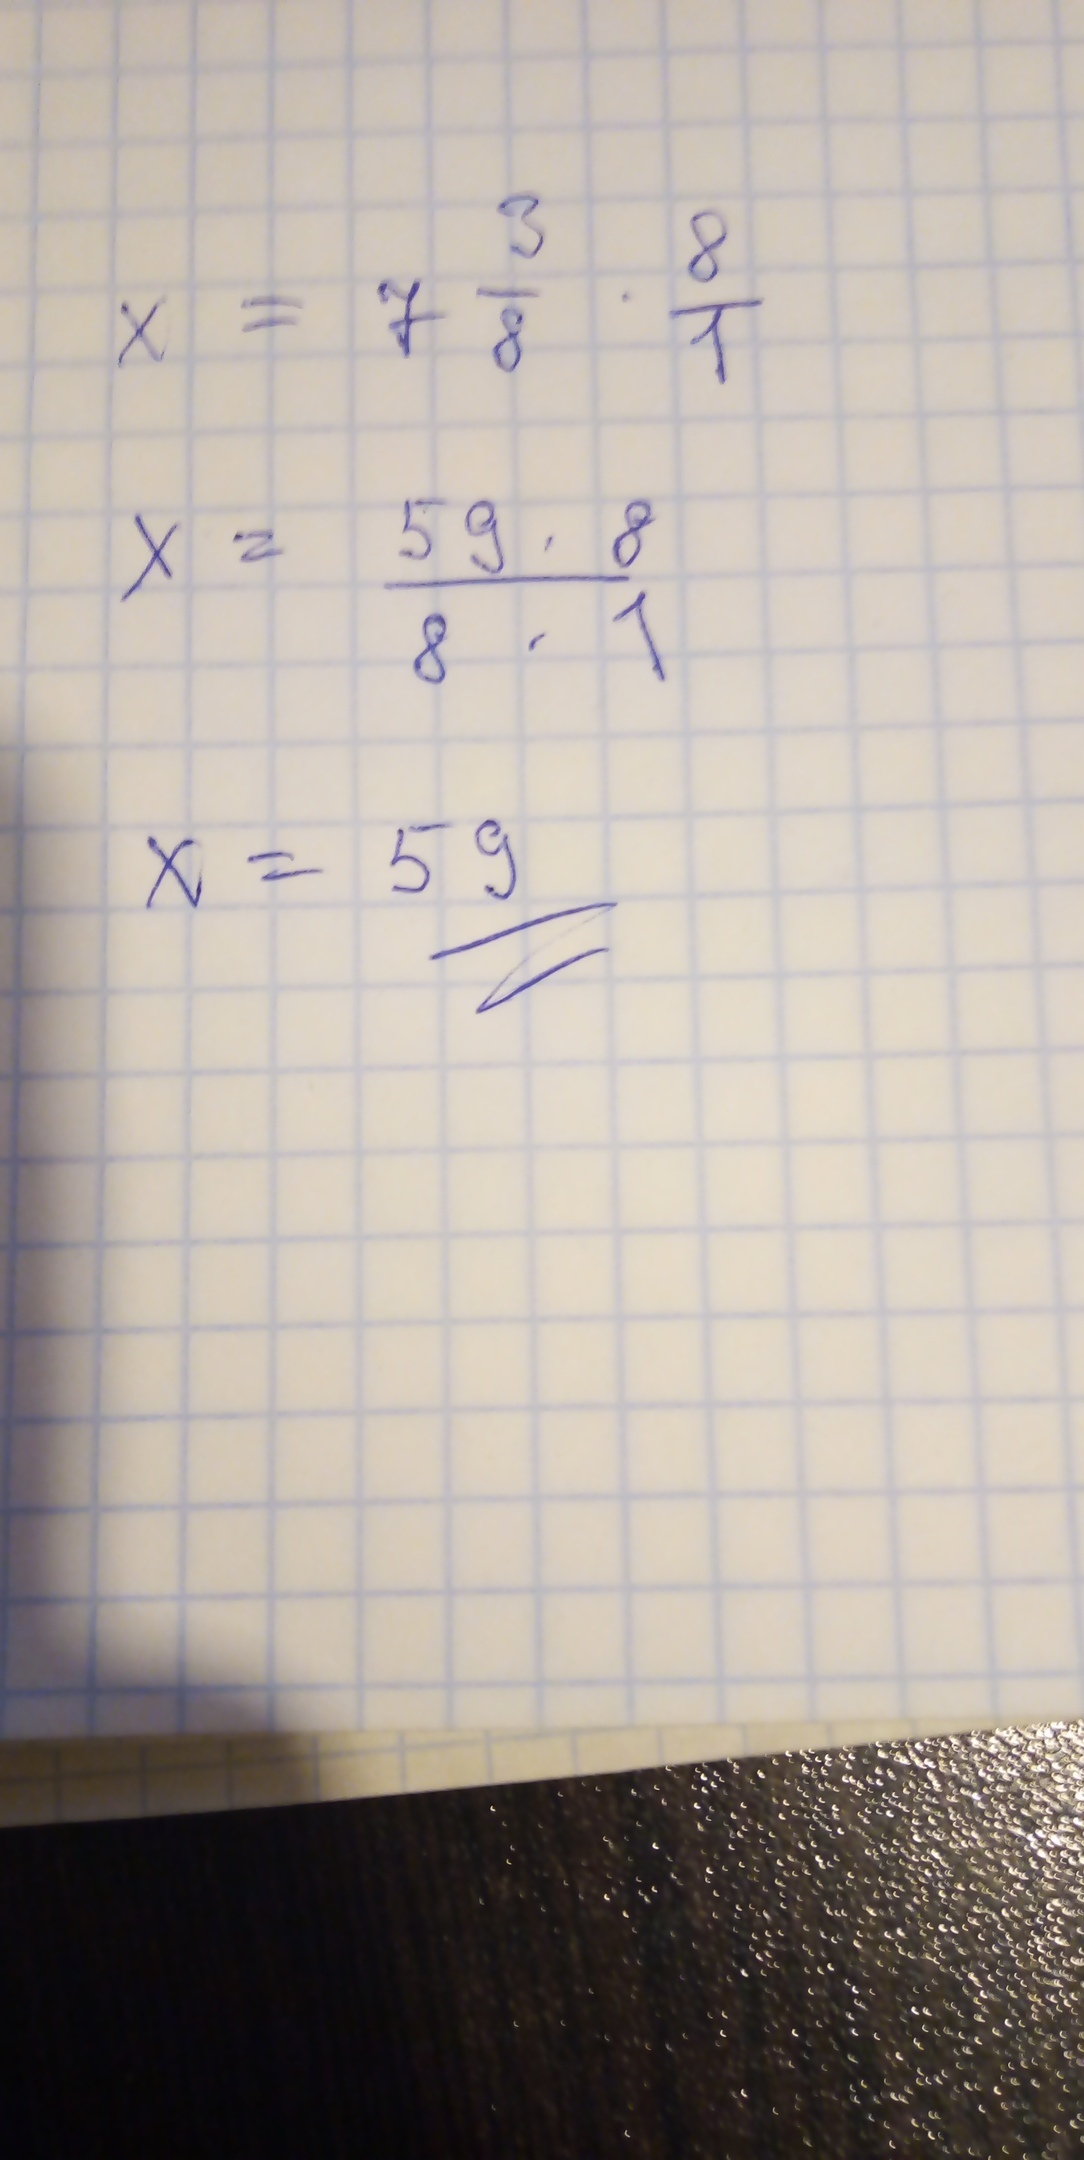 x = 7 3/8 · 8/1
x = 59 · 8 / 8 · 1
x = 59